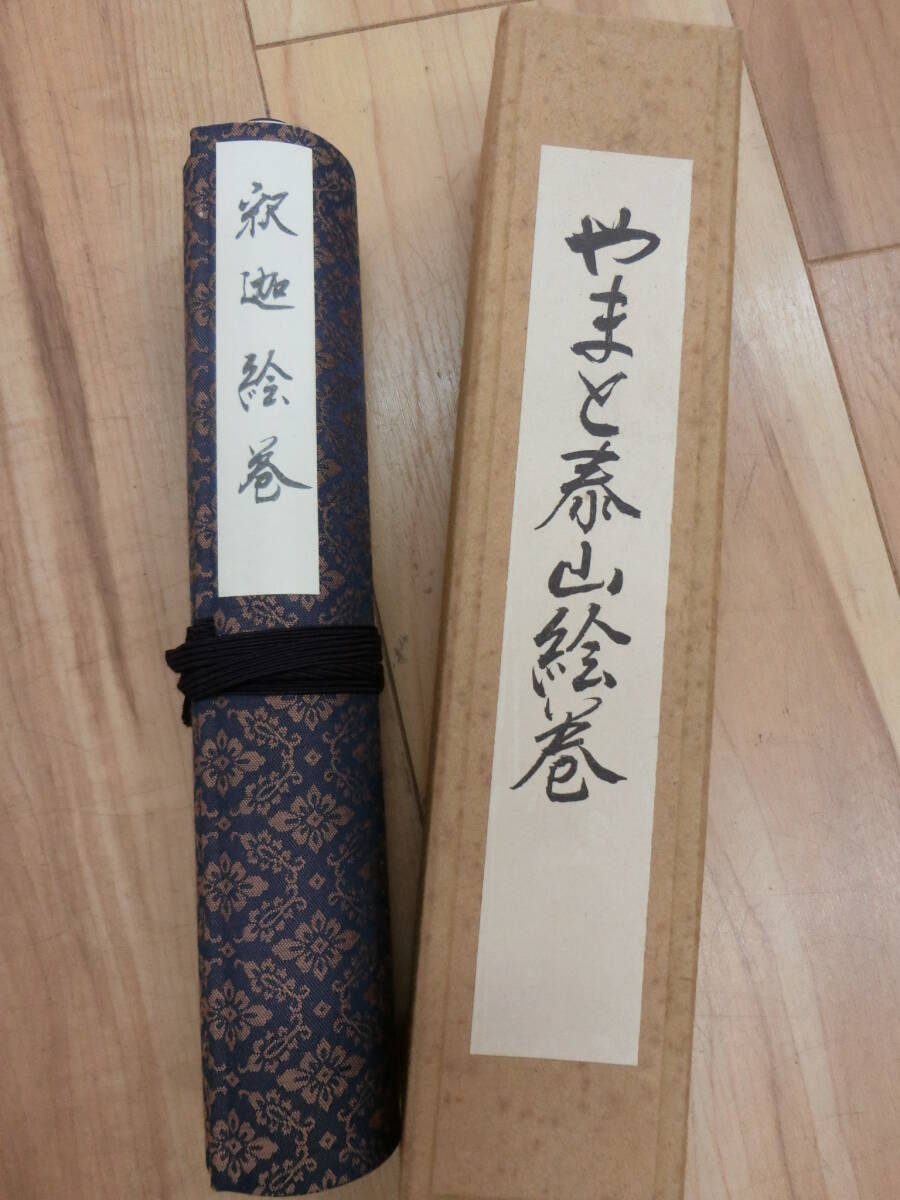 釈迦絵巻
やまと泰山絵巻